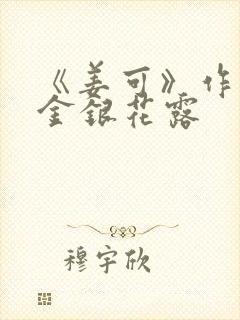 《姜可》作
金银花露
穆宇欣